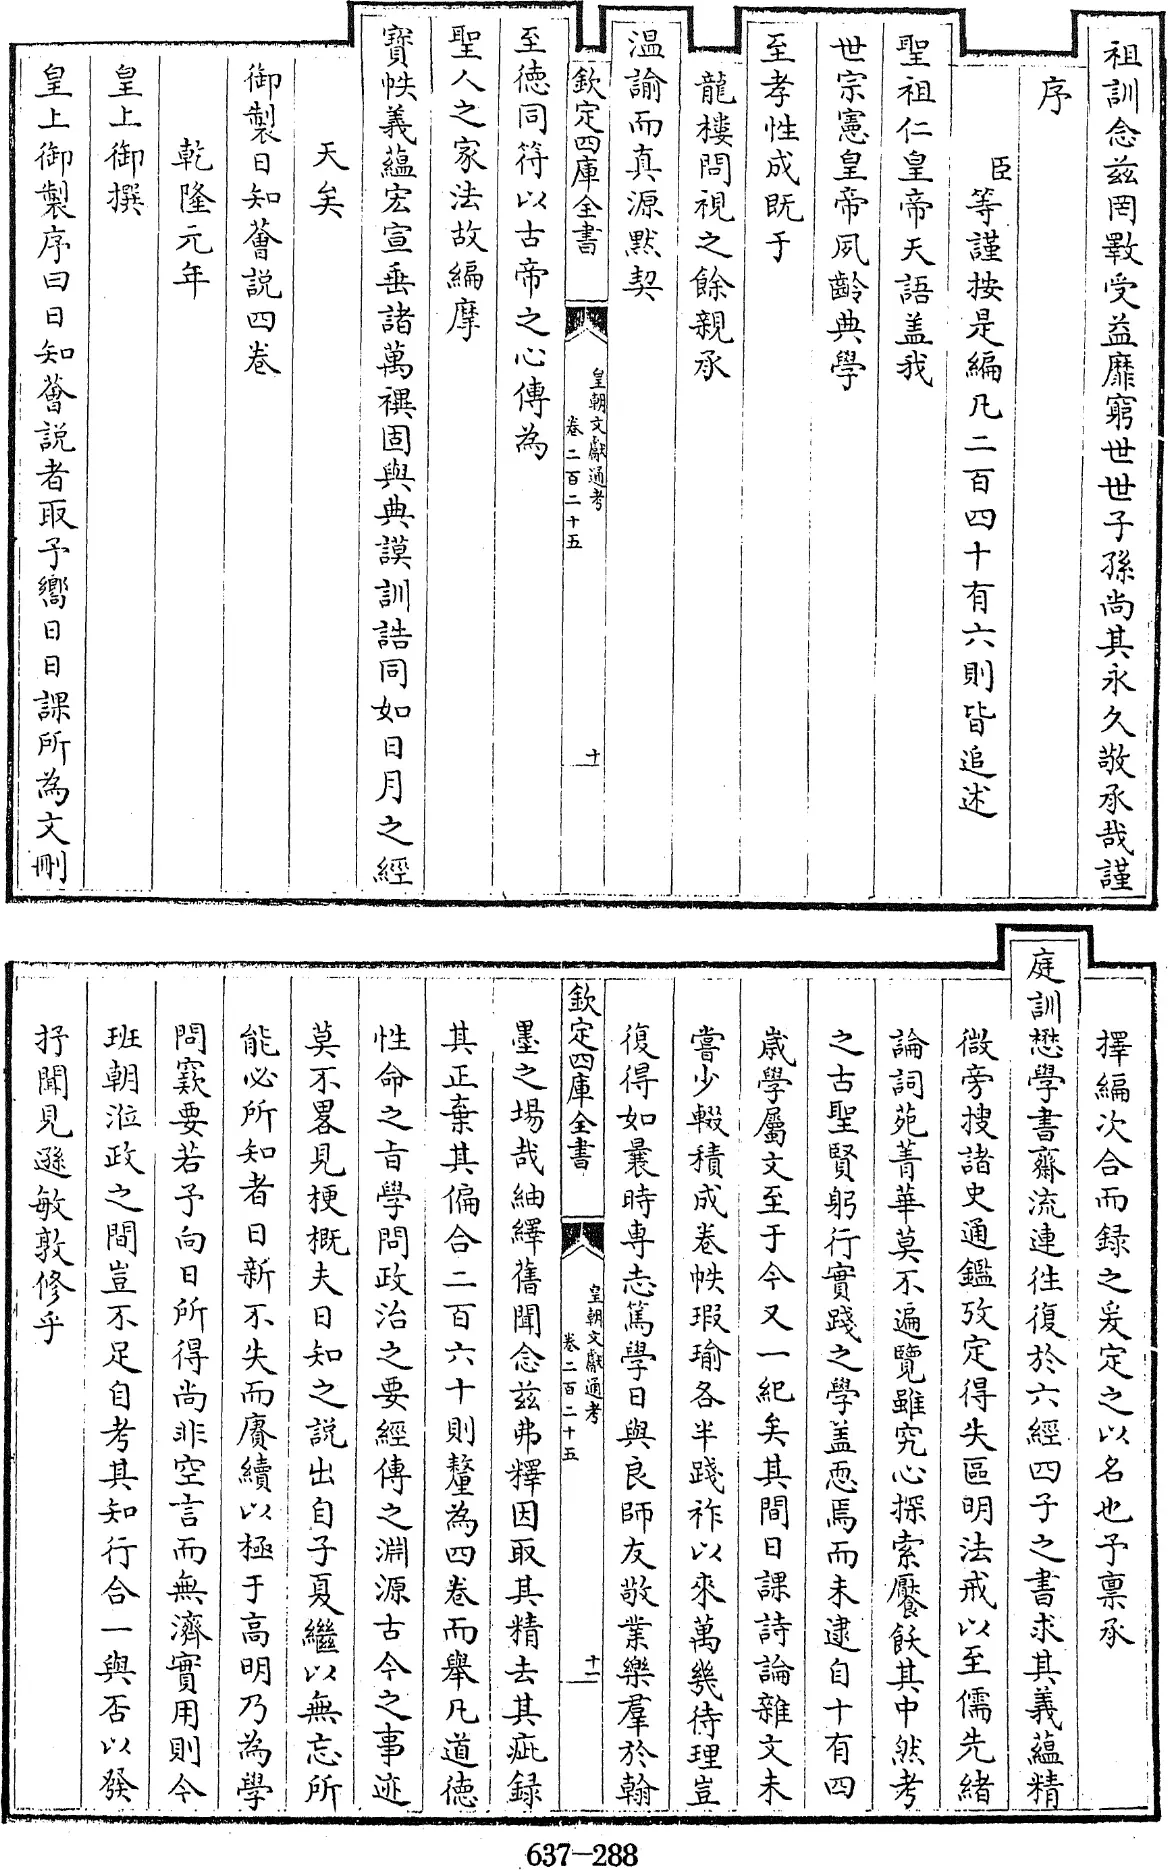 祖訓念兹罔斁受益靡窮世世子孫尚其永久敬承哉謹
序
臣等謹按是編凡二百四十有六則皆追述
聖祖仁皇帝天語盖我
世宗憲皇帝夙齡典學
至孝性成既于
龍樓問視之餘親承
温諭而真源默契
欽定四庫全書
皇朝文獻通考
卷二百二十五
十
至徳同符以古帝之心傳為
聖人之家法故編摩
寳帙義蘊宏宣垂諸萬禩固與典謨訓誥同如日月之經
天矣
御製日知薈説四卷
乾隆元年
皇上御撰
皇上御製序曰日知薈説者取予嚮日日課所為文刪
擇編次合而録之爰定之以名也予禀承
庭訓懋學書齋流連徃復於六經四子之書求其義蘊精
微旁搜諸史通鑑攷定得失區明法戒以至儒先緒
論詞苑菁華莫不遍覽雖究心探索饜飫其中然考
之古聖賢躬行實踐之學盖恧焉而未逮自十有四
嵗學屬文至于今又一紀矣其間日課詩論雜文未
嘗少輟積成卷帙瑕瑜各半踐祚以來萬幾待理豈
復得如曩時専志篤學日與良師友敬業樂羣於翰
欽定四庫全書
皇朝文獻通考
卷二百二十五
十一
墨之場哉紬繹舊聞念兹弗釋因取其精去其疵録
其正棄其偏合二百六十則釐為四卷而舉凡道徳
性命之㫖學問政治之要經傳之淵源古今之事迹
莫不畧見梗概夫日知之説出自子夏繼以無忘所
能必所知者日新不失而賡續以極于高明乃為學
問窾要若予向日所得尚非空言而無濟實用則今
班朝涖政之間豈不足自考其知行合一與否以發
抒聞見遜敏敦修乎
637-288